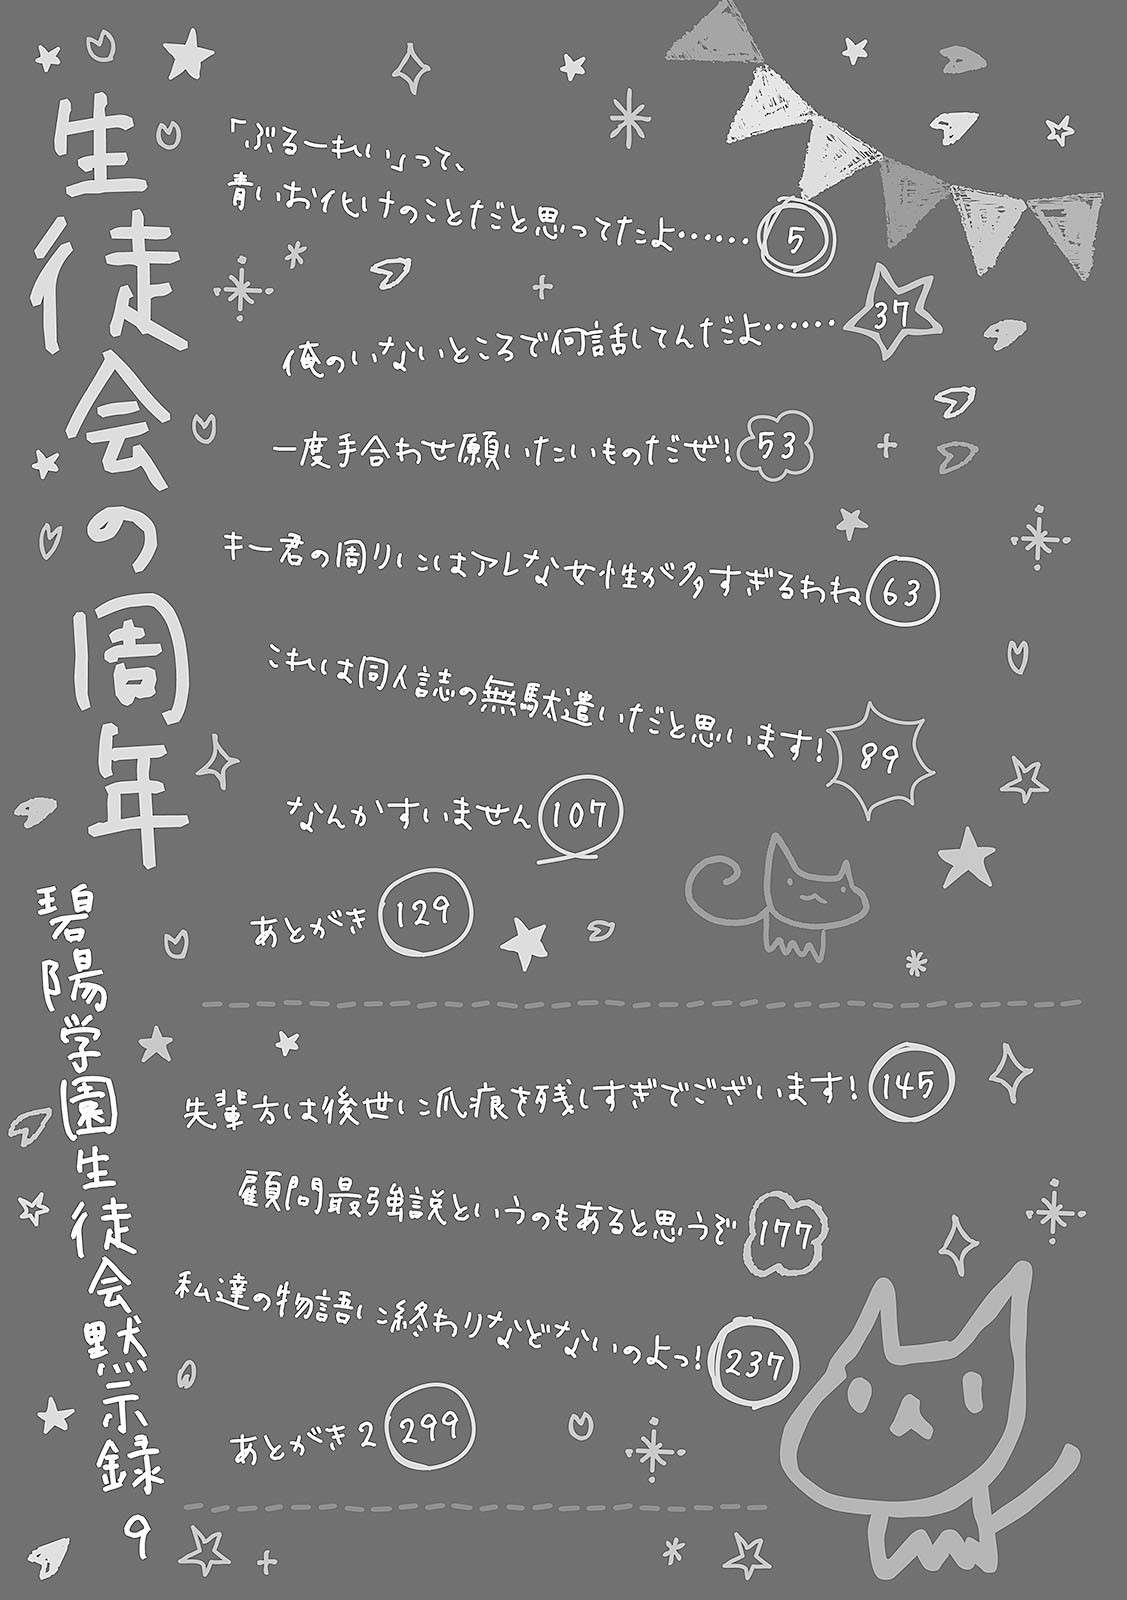 生徒会の周年
碧陽学園生徒会黙示録 9
「ぶるーれい」って、
青いお化けのことだと思ってたよ…… 5
俺のいないところで何話してんだよ…… 37
一度手合わせ願いたいものだぜ! 53
キー君の周りにはアレな女性が多すぎるわね 63
これは同人誌の無駄遣いだと思います! 89
なんかすいません 107
あとがき 129
先輩方は後世に爪痕を残しすぎでございます! 145
顧問最強説というのもあると思うぞ 177
私達の物語に終わりなどないのよっ! 237
あとがき2 299